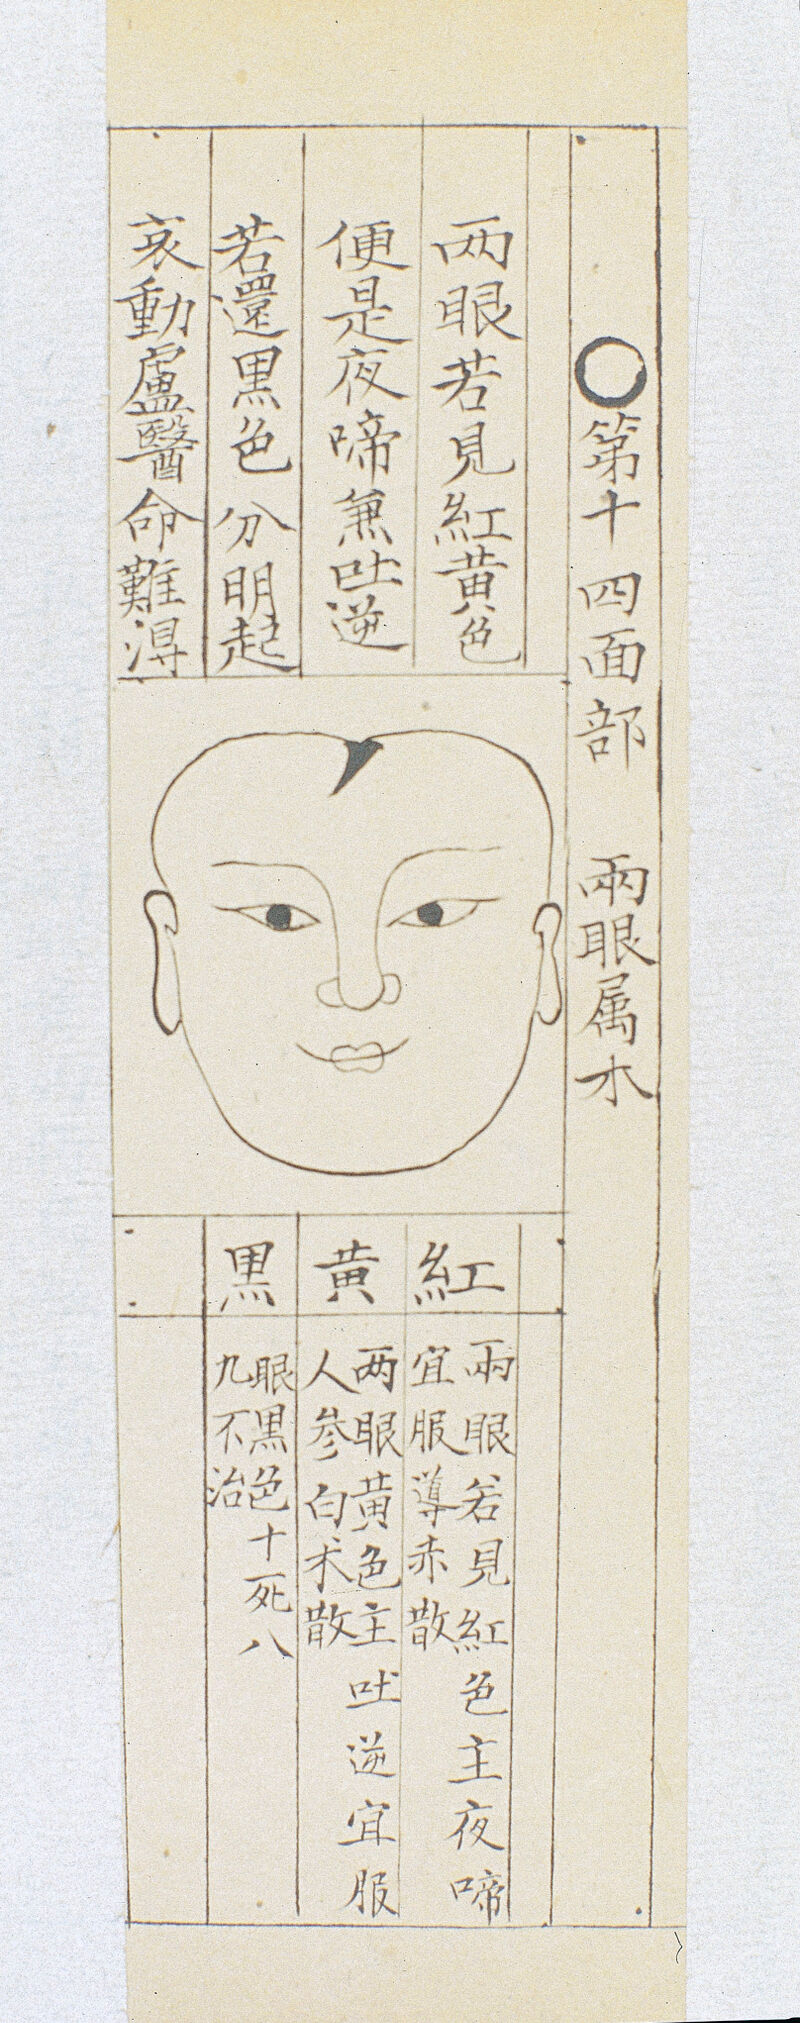 ○第十四面部 兩眼属木
两眼若見紅黄色
便是夜啼兼吐逆
若還黒色分明起
哀動盧醫命難淂
紅
兩眼若見紅色主夜啼
宜服導赤散
黄
两眼黄色主吐逆宜服
人參白术散
黒
眼黒色十死八
九不治